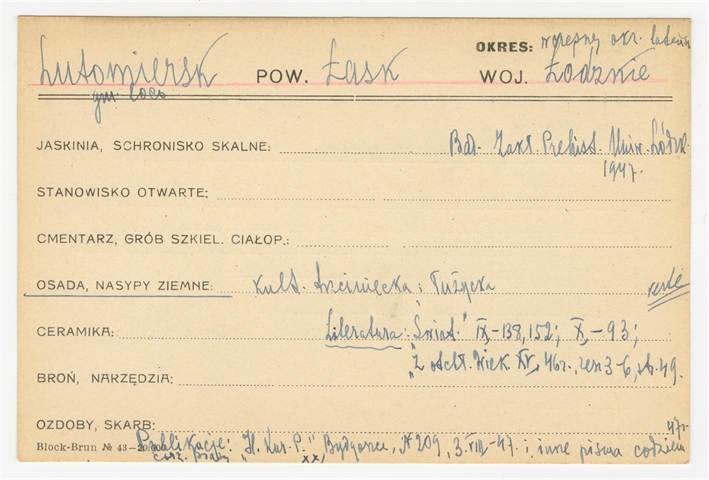 OKRES: wczesny okr. lateńs.
Lutomiersk POW. Łask WOJ. Łódzkie
gm. loco
JASKINIA, SCHRONISKO SKALNE: Bad. Zakł. Prehist. Uniw. Łódzk.
1947.
STANOWISKO OTWARTE:
CMENTARZ, GRÓB SZKIEL. CIAŁOP.:
OSADA, NASYPY ZIEMNE: Kult. trzciniecka i Łużycka
CERAMIKA: Literatura: "Świat." IX-138,152; X,-93;
"Z otchł. Wiek. XV, 46r., zesz 3-6, st. 49.
BROŃ, NARZĘDZIA:
OZDOBY, SKARB: 47r.
Publikacje: "Il. Kur. P." Bydgoszcz, № 209, 3.VIII-47. i inne pisma codzien
Block-Brun № 43—20.000 xx)